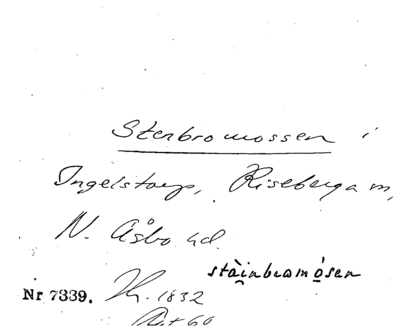 Stenbromossen i
Ingelstorp, Riseberga sn,
N. Åsbo hd.
stàinbromósen
Nr 7339. Th. 1832
Akt 60